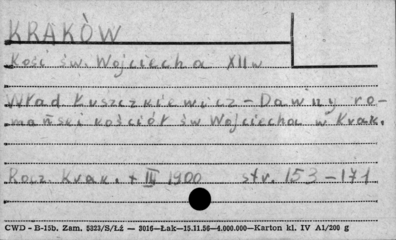 KRAKÒW
Kość św. Wojciecha XII w
Wład Łuszczkiewicz - Dawny ro-
mański kościół św Wojciecha w Krak.
Rocz. Krak. t III 1900 str. 153-171
CWD - B-15b. Zam. 5323/S/Łż — 3016—Łak—15.11.56—4.000.000—Karton kl. IV A1/200 g